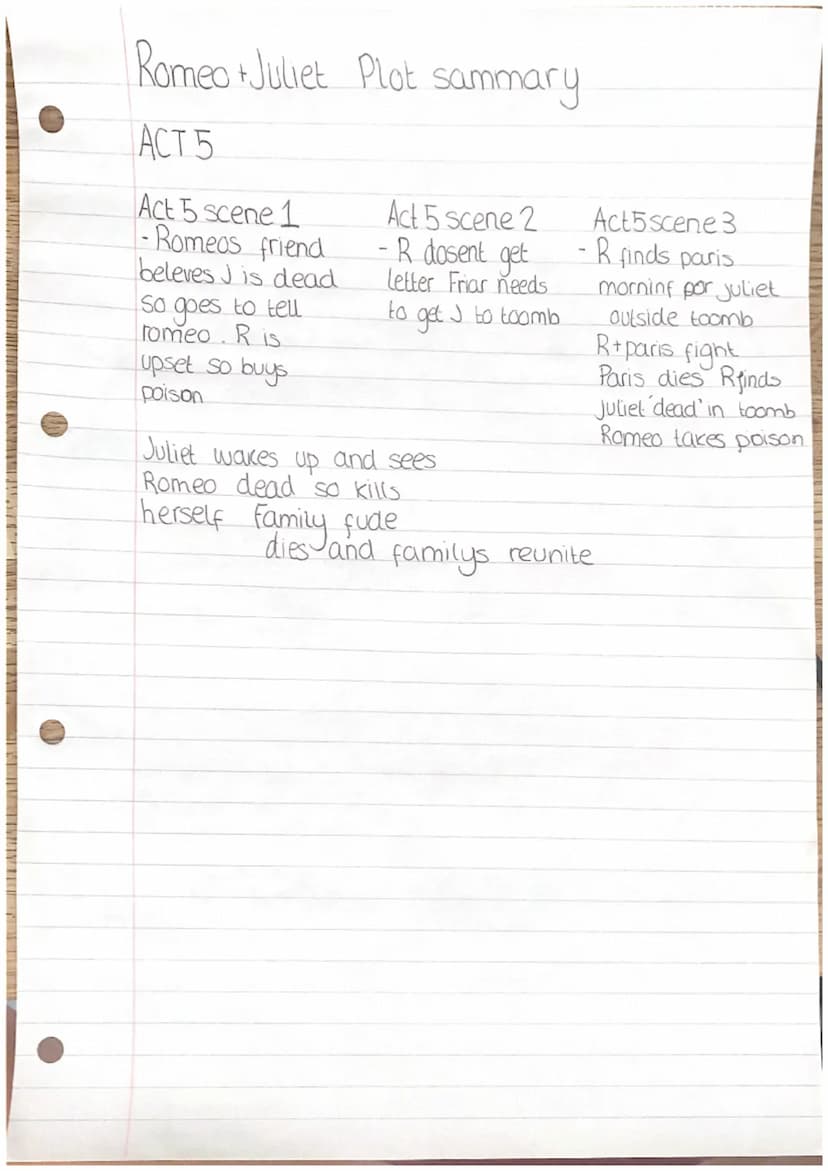 Romeo + Juliet Plot sammary
ACT 5
Act 5 scene 1
- Romeos friend
beleves J is dead
so goes to tell
romeo. R is
upset so buys
poison
Act 5 scene 2
- R dosent get
letter Friar needs
to get J to toomb
Act 5 scene 3
- R finds paris
morninf for juliet
outside toomb
R + paris fight
Paris dies R finds
juliet 'dead' in toomb
Romeo takes poison
Juliet wakes up and sees
Romeo dead so kills
herself Family fude
dies and familys reunite